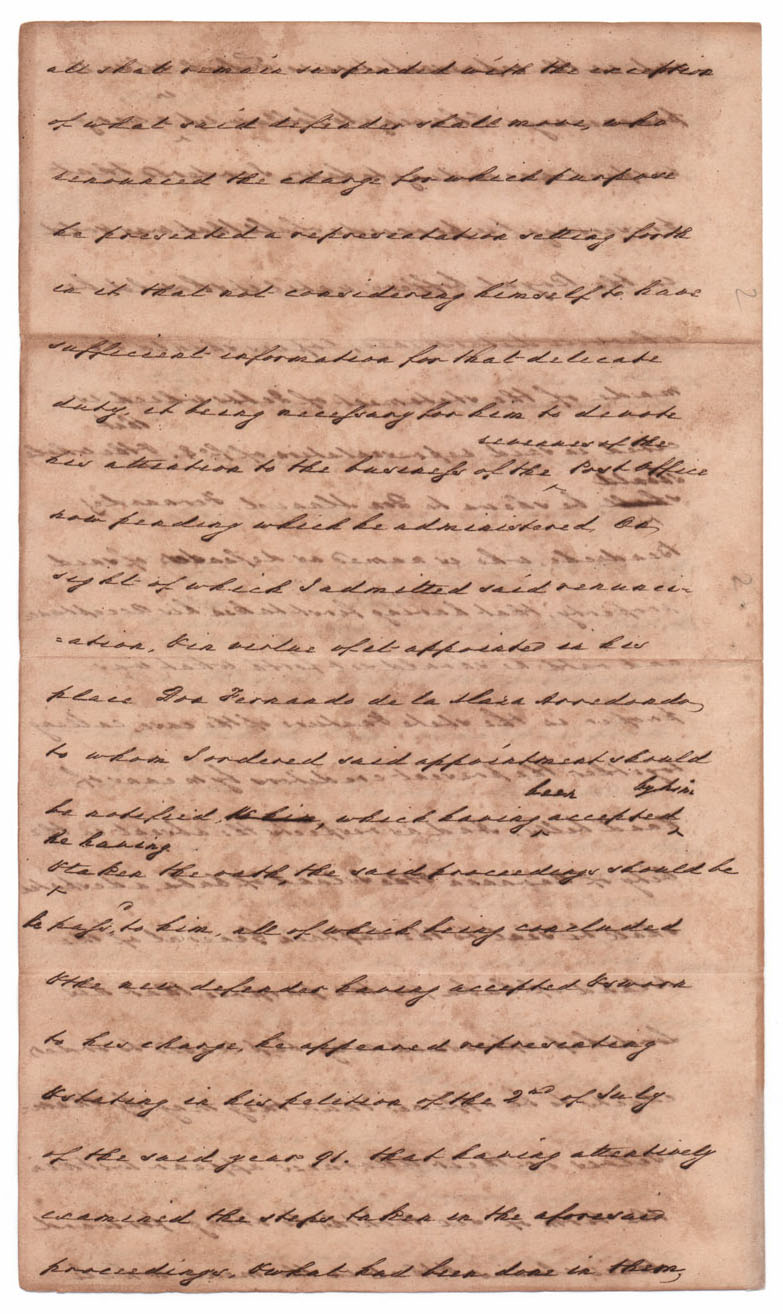 all shall remain suspended with the exception
of what said defender shall move, who
renounced the charge for which purpose
he presented a representation setting forth
in it that not considering himself to have
sufficient information for that delicate
duty, it being necessary for him to devote
revenues of the
his attention to the business of the Post Office
now pending which he administered. On
sight of which I admitted said renunci-
=ation, & in virtue of it appointed in his
place Don Fernando de la Maza Arredondo,
to whom I ordered said appointment should
been by him
be notified to him, which having accepted
he having
& taken the oath, the said proceedings should be
be passd. to him, all of which being concluded
& the new defender having accepted & sworn
to his charge, he appeared representing
& stating in his petition of the 2nd of July
of the said year 91. that having attentively
examined the steps taken in the aforesaid
proceedings, & what had been done in them,